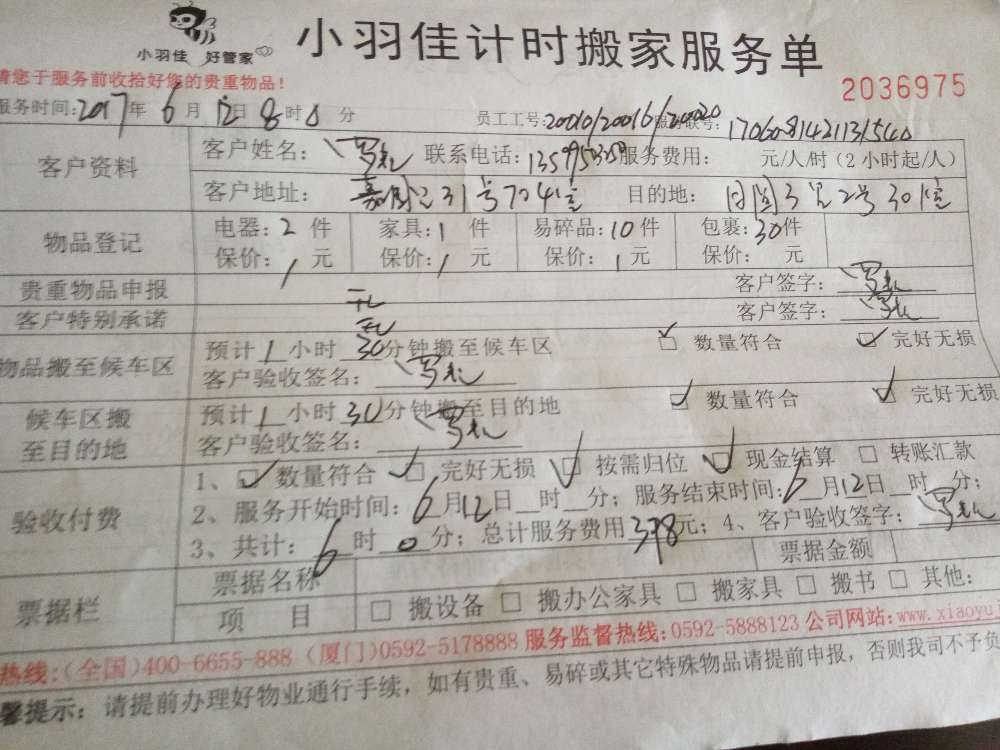 小羽佳 好管家
小羽佳计时搬家服务单
请您于服务前收拾好您的贵重物品！
2036975
服务时间：2017年6月12日8时0分 员工工号：20010/20016/20020 服务联号：1706081421131540
客户资料
客户姓名： 联系电话： 服务费用： 元/人/时（2小时起/人）
客户地址： 31号704室 目的地： 2号301室
物品登记
电器：2件 家具：1件 易碎品：10件 包裹：30件
保价：/元 保价：/元 保价：/元 保价： 元
贵重物品申报 无 客户签字：
客户特别承诺 无 客户签字：
物品搬至候车区
预计1小时30分钟搬至候车区 ☑ 数量符合 ☑ 完好无损
客户验收签名：
候车区搬至目的地
预计1小时30分钟搬至目的地 ☑ 数量符合 ☑ 完好无损
客户验收签名：
验收付费
1、☑ 数量符合 ☑ 完好无损 ☑ 按需归位 ☑ 现金结算 □ 转账汇款
2、服务开始时间：6月12日 时 分；服务结束时间：6月12日 时 分；
3、共计：6时0分；总计服务费用378元；4、客户验收签字：
票据栏
票据名称 票据金额
项 目 □ 搬设备 □ 搬办公家具 □ 搬家具 □ 搬书 □ 其他：
热线：（全国）400-6655-888（厦门）0592-5178888 服务监督热线：0592-5888123 公司网站：www.xiaoyu
馨提示：请提前办理好物业通行手续，如有贵重、易碎或其它特殊物品请提前申报，否则我司不予负